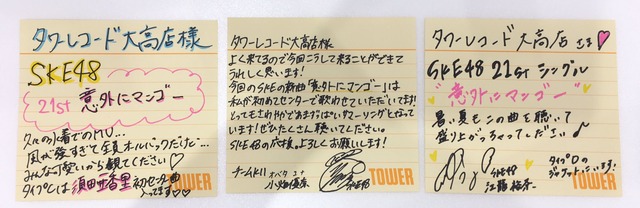 タワーレコード大高店様
SKE48
21st 意外にマンゴー
久々の水着でのMV…
風が強すぎて全員オールバックだけど…
みんな可愛いから観てください♡
タイプCは須田亜香里初センター曲
入ってます♡
TOWER
タワーレコード大高店様
よく来てるので今回こうして来ることができて
うれしく思います!
今回のSKEの新曲「意外にマンゴー」は
私が初めてセンターで歌わせていただいてます!
とってもさわやかであまずっぱいサマーソングとなって
います!ぜひたくさん聴いてください。
SKE48の応援、よろしくお願いします!
チームKII オバタ ユナ
小畑優奈
SKE48
TOWER
タワーレコード大高店さま♡
SKE48 21st シングル
"意外にマンゴー"
暑い夏もこの曲を聴いて
盛り上がっちゃってください♪
SKE48
江籠裕奈
タイプDの
ジャケットにいます。
TOWER